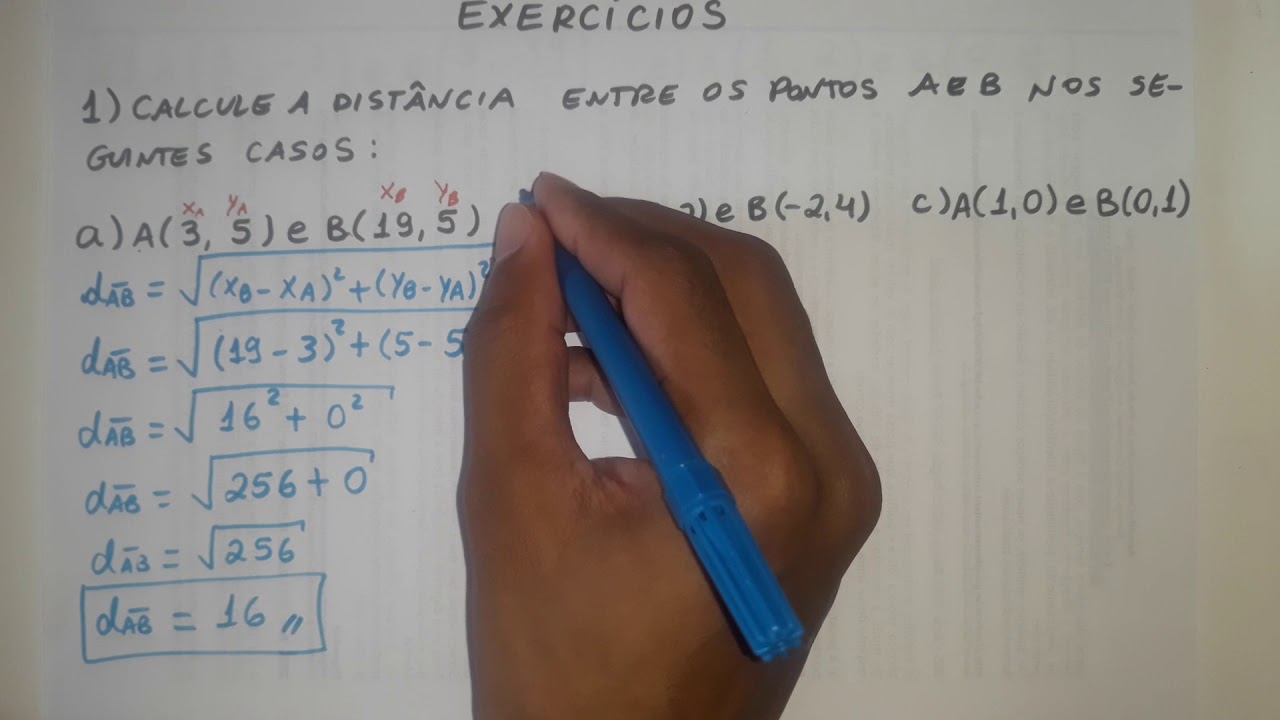 EXERCÍCIOS
1) CALCULE A DISTÂNCIA ENTRE OS PONTOS A E B NOS SE-
GUINTES CASOS:
X_A Y_A X_B Y_B
a) A(3, 5) e B(19, 5) ) e B(-2,4) c) A(1,0) e B(0,1)
d_A̅B̅ = √(X_B - X_A)² + (Y_B - Y_A)²
d_A̅B̅ = √(19 - 3)² + (5 - 5
d_A̅B̅ = √16² + 0²
d_A̅B̅ = √256 + 0
d_A̅B̅ = √256
d_A̅B̅ = 16 //